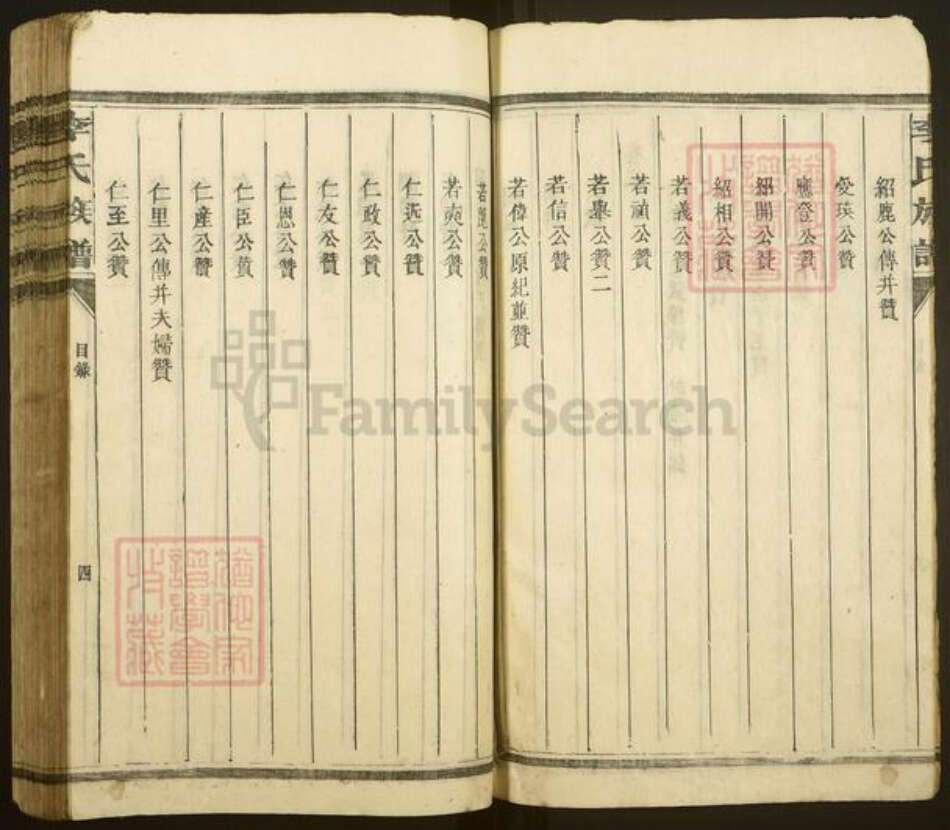 紹鹿公傳并贊
愛瑛公贊
應登公贊
紹開公贊
紹相公贊
若義公贊
若禎公贊
若舉公贊二
若信公贊
若偉公原紀並贊
公贊
若奭公贊
仁遜公贊
仁政公贊
仁友公贊
仁恩公贊
仁臣公贊
仁產公贊
仁里公傳并夫婦贊
仁至公贊
李氏族譜
目錄
四
李氏族譜
FamilySearch
猶他家譜學會攷藏